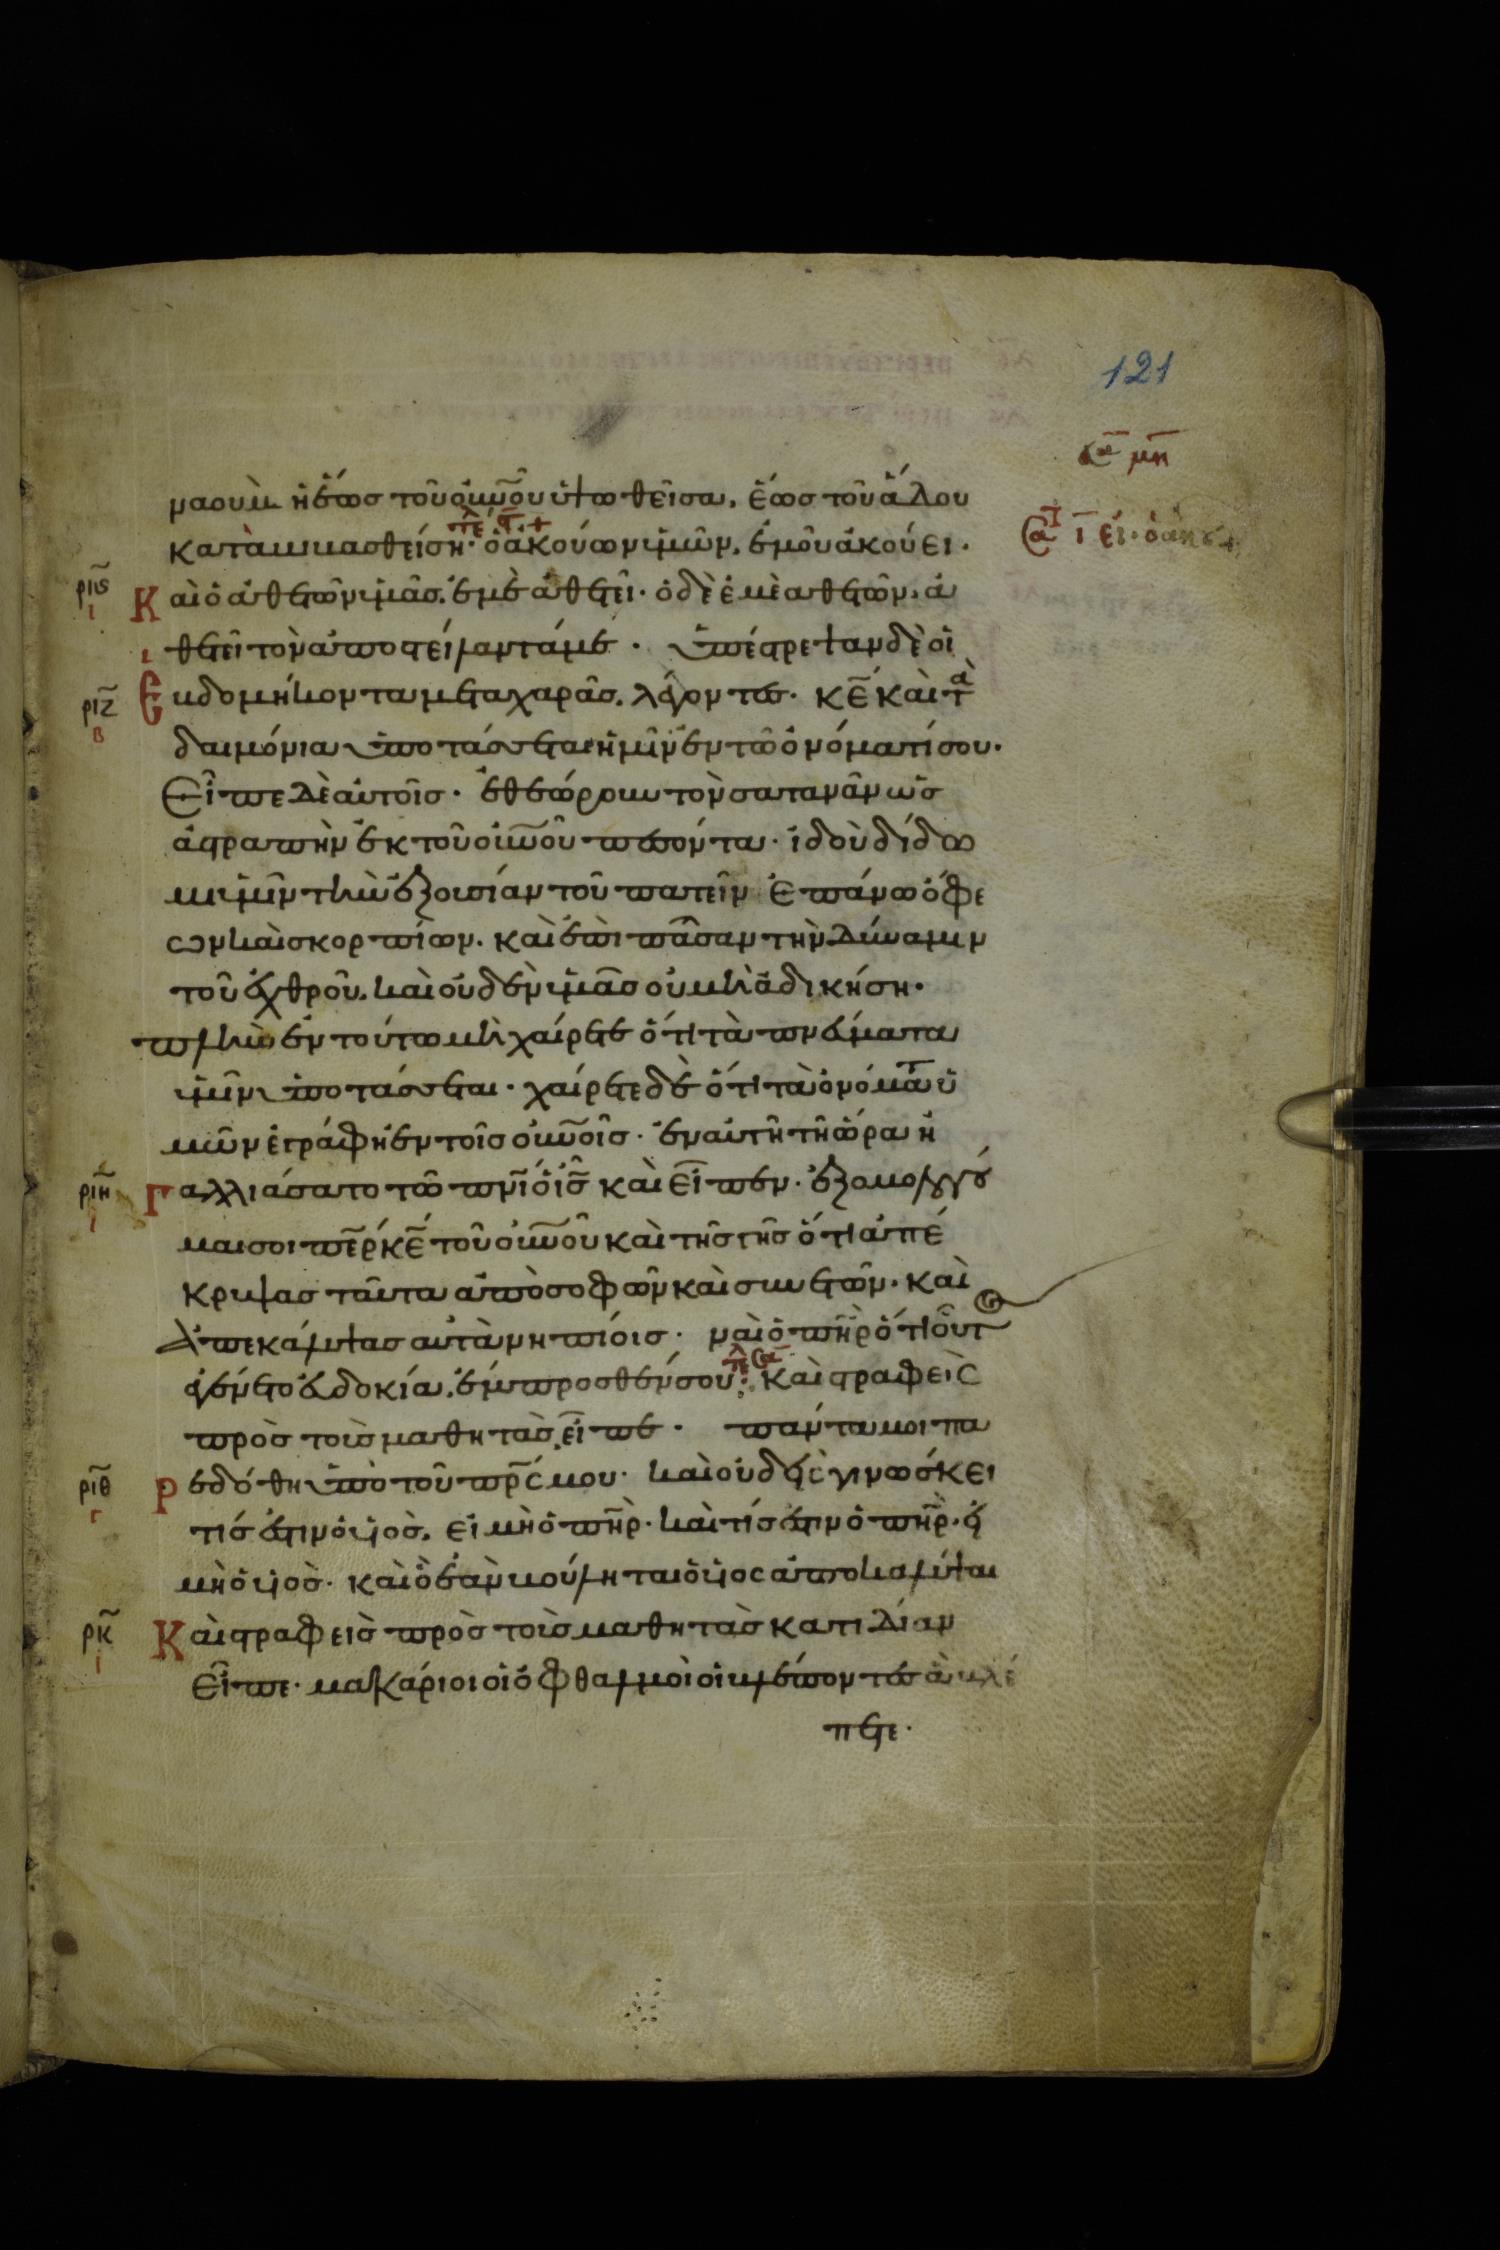 121
ναουμ ἡ ἕως τοῦ οὐνοῦ ὑψωθεῖσα, ἕως τοῦ ἅδου
καταβιβασθείση· ὁ ἀκούων ὑμῶν, ἐμοῦ ἀκούει·
ριϛ
ι
Καὶ ὁ ἀθετῶν ὑμᾶς, ἐμὲ ἀθετεῖ· ὁ δὲ ἐμὲ ἀθετῶν, ἀ
θετεῖ τὸν ἀποστείλαντά με· ὑπέστρεψαν δὲ οἱ
ριζ
β
Ἑβδομήκοντα μετὰ χαρᾶς, λέγοντες· κε καὶ τὰ
δαιμόνια ὑποτάσσεται ἡμῖν ἐν τῶ ὀνόματί σου·
Εἶπε δὲ αὐτοῖς· ἐθεώρουν τὸν σατανᾶν ὡς
ἀστραπὴν ἐκ τοῦ οὐνοῦ πεσόντα· ἰδοὺ δίδω
μι ὑμῖν τὴν ἐξουσίαν τοῦ πατεῖν ἐπάνω ὄφε
ων καὶ σκορπίων· καὶ ἐπὶ πᾶσαν τὴν δύναμιν
τοῦ ἐχθροῦ, καὶ οὐδὲν ὑμᾶς οὐ μὴ ἀδικήση·
πλὴν ἐν τούτω μὴ χαίρετε ὅτι τὰ πνεύματα
ὑμῖν ὑποτάσσεται· χαίρετε δὲ ὅτι τὰ ὀνόματα ὑ
μῶν ἐγράφη ἐν τοῖς οὐνοῖς· ἐν αὐτῆ τῆ ὥρα ἠ
ριη
ι
Γαλλιάσατο τῶ πνι ὁ ις καὶ εἶπεν· ἐξομολογοῦ
μαι σοι περ κε τοῦ οὐνοῦ καὶ τῆς γῆς ὅτι ἀπέ
κρυψας ταῦτα ἀπὸ σοφῶν καὶ συνετῶν· καὶ
ἀπεκάλυψας αὐτὰ νηπίοις· ναὶ ὁ πηρ ὅτι οὕτως
ἐγένετο εὐδοκία, ἔμπροσθέν σου· καὶ στραφεὶς
πρὸς τοὺς μαθητὰς, εἶπε· πάντα μοι πα
ριθ
γ
Ρεδόθη ὑπὸ τοῦ πρς μου· καὶ οὐδεὶς γινώσκει
τίς ἐστιν ὁ υἱὸς, εἰ μὴ ὁ πηρ· καὶ τίς ἐστιν ὁ πηρ· εἰ
μὴ ὁ υἱὸς· καὶ ὃ ἐὰν βούληται ὁ υἱὸς ἀποκαλύψαι
ρκ
ι
Καὶ στραφεὶς πρὸς τοὺς μαθητὰς κατιδίαν
εἶπε· μακάριοι οἱ ὀφθαλμοὶ οἱ βλέποντες ἃ βλέ
πετε·